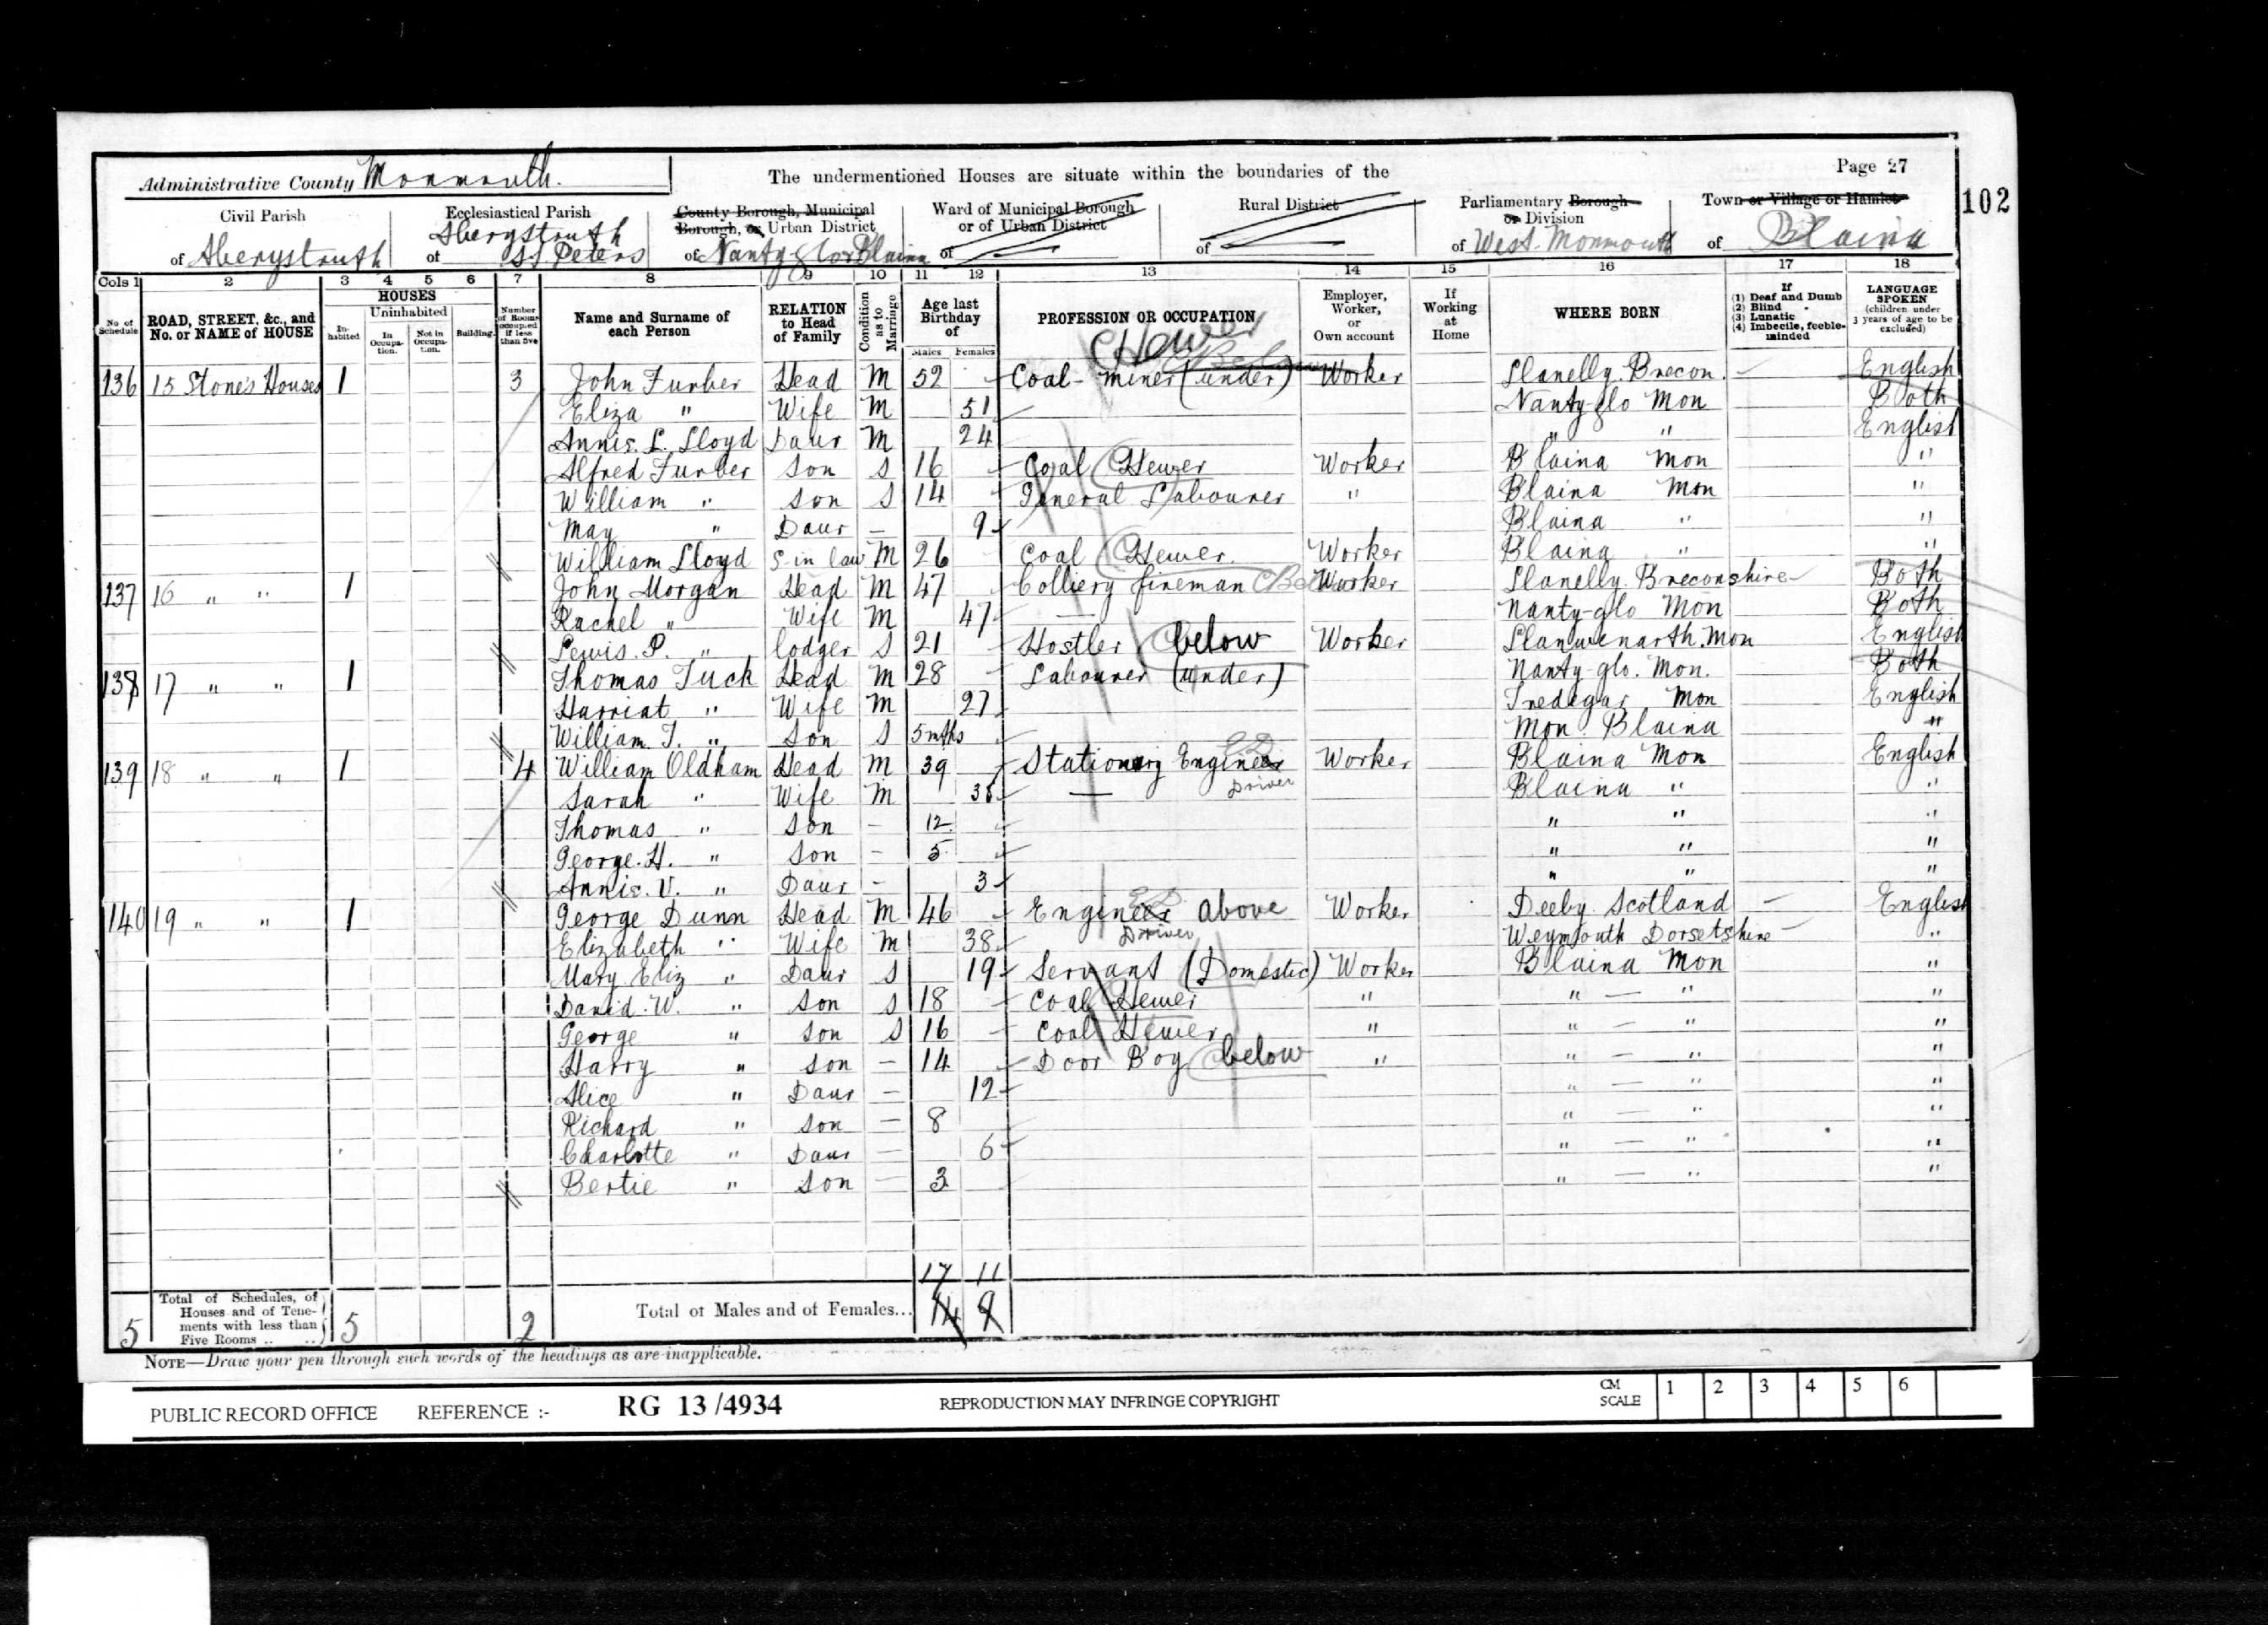 Administrative County Monmouth. The undermentioned Houses are situate within the boundaries of the Page 27
102
Civil Parish of Aberystruth
Ecclesiastical Parish of Aberystruth St Peters
County Borough, Municipal Borough, or Urban District of Nantyglo & Blaina
Ward of Municipal Borough or of Urban District of
Rural District of
Parliamentary Borough or Division of West Monmouth
Town or Village or Hamlet of Blaina
Cols 1 2 3 4 5 6 7 8 9 10 11 12 13 14 15 16 17 18
No of Schedule
ROAD, STREET, &c., and No. or NAME of HOUSE
HOUSES
Inhabited
Uninhabited
In Occupation.
Not in Occupation.
Building.
Number of Rooms occupied if less than five
Name and Surname of each Person
RELATION to Head of Family
Condition as to Marriage
Age last Birthday of
Males Females
PROFESSION OR OCCUPATION
Employer, Worker, or Own account
If Working at Home
WHERE BORN
If (1) Deaf and Dumb (2) Blind (3) Lunatic (4) Imbecile, feeble-minded
LANGUAGE SPOKEN (children under 3 years of age to be excluded)
Hewer Below
136 15 Stones Houses 1 3 John Furber Head M 52 Coal - miner (under) Worker Llanelly. Brecon. English
Eliza " Wife M 51 Nanty-glo Mon Both
Annie. L. Lloyd Daur M 24 " " English
Alfred Furber Son S 16 Coal Hewer Worker Blaina Mon "
William " Son S 14 General Labourer " Blaina Mon "
May " Daur - 9 Blaina " "
William Lloyd S-in law M 26 Coal Hewer Worker Blaina " "
137 16 " " 1 John Morgan Head M 47 Colliery fireman Worker Llanelly. Breconshire Both
Rachel " Wife M 47 — Nanty-glo Mon Both
Lewis. P. " lodger S 21 Hostler below Worker Llanwenarth. Mon English
138 17 " " 1 Thomas Tuck Head M 28 Labourer (under) Nanty-glo. Mon. Both
Harriat " Wife M 27 Tredegar Mon English
William T. " Son S 5 mths Mon Blaina "
139 18 " " 1 4 William Oldham Head M 39 Stationary Engineer Worker Blaina Mon English
Driver
Sarah " Wife M — Blaina " "
Thomas " Son - 12 " " "
George. H. " Son - 5 " " "
Annie. V. " Daur - 3 " " "
140 19 " " 1 George Dunn Head M 46 Engineer above Worker Scotland English
Driver
Elizabeth " Wife M 38 Weymouth Dorsetshire "
Mary Eliz " Daur S 19 Servant (Domestic) Worker Blaina Mon "
David. W. " Son S 18 Coal Hewer " " — " "
George " Son S 16 Coal Hewer " " — " "
Harry " Son - 14 Door Boy below " " — " "
Alice " Daur - 12 " — " "
Richard " Son - 8 " — " "
Charlotte " Daur - 6 " — " "
Bertie " Son - 3 " — " "
17 11
5 Total of Schedules, of Houses and of Tenements with less than Five Rooms .. .. 5 2 Total of Males and of Females... 14 9
NOTE—Draw your pen through such words of the headings as are inapplicable.
PUBLIC RECORD OFFICE REFERENCE :- RG 13/4934 REPRODUCTION MAY INFRINGE COPYRIGHT CM SCALE 1 2 3 4 5 6